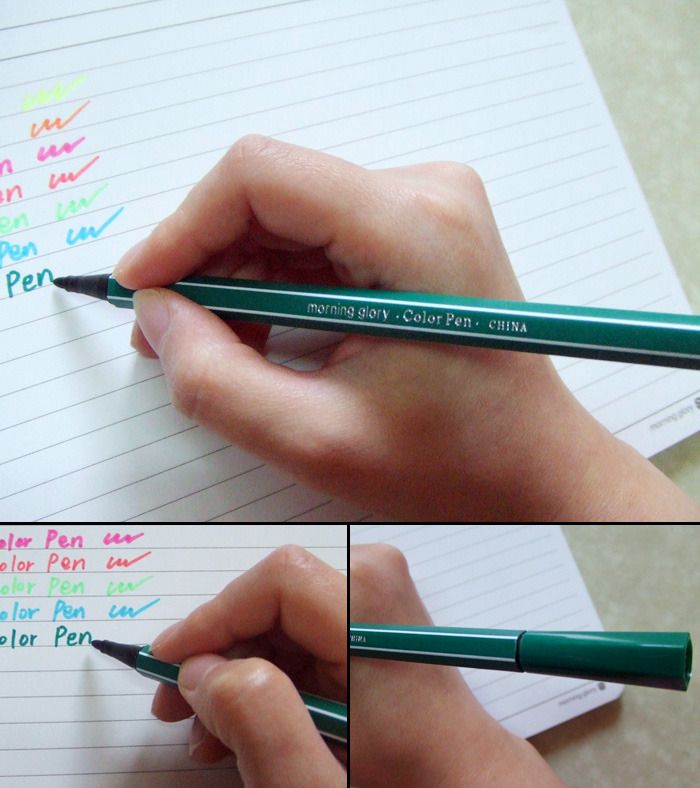 en
Pen
Pen
morning glory · Color Pen · CHINA
morning glory
olor Pen
olor Pen
olor Pen
olor Pen
olor Pen
morning glory